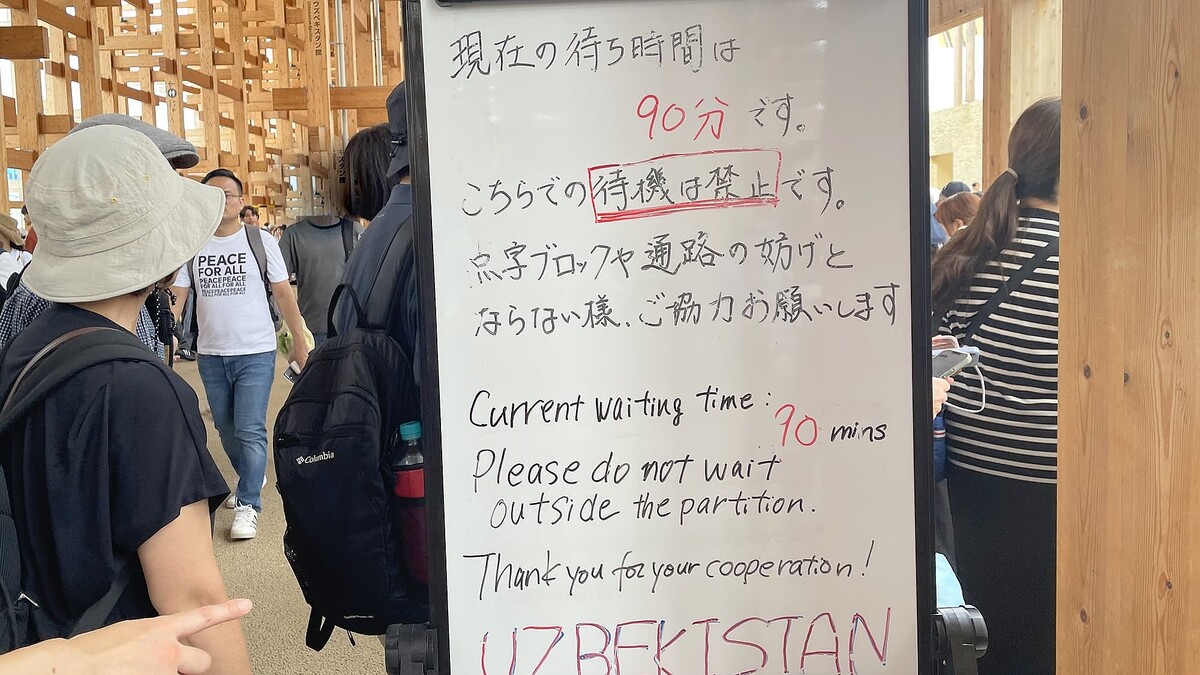 現在の待ち時間は
90分です。
こちらでの待機は禁止です。
点字ブロックや通路の妨げと
ならない様、ご協力お願いします
Current waiting time:
90 mins
Please do not wait
outside the partition.
Thank you for your cooperation!
UZBEKISTAN
PEACE
FOR ALL
PEACEPEACE
FOR ALL FOR ALL
PEACEPEACE
FOR ALL FOR ALL
Columbia
ウズベキスタン館